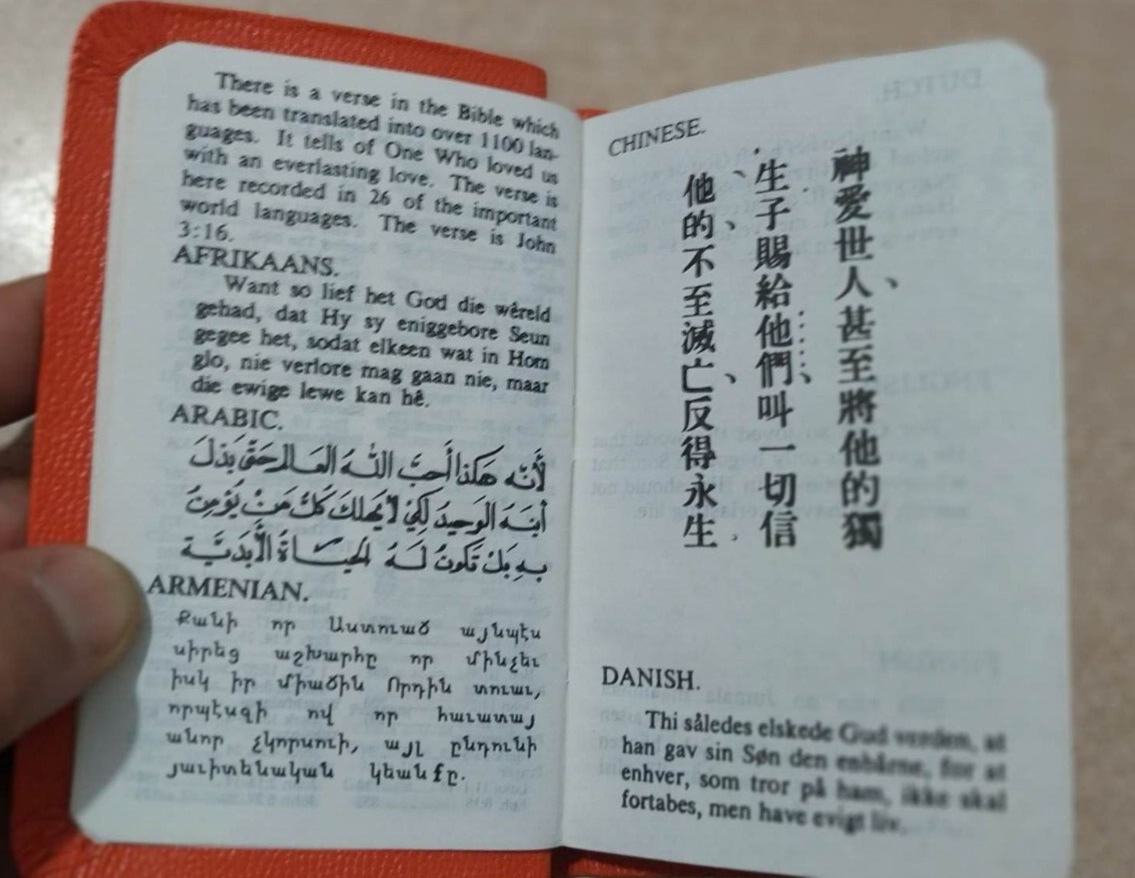 There is a verse in the Bible which
has been translated into over 1100 lan-
guages. It tells of One Who loved us
with an everlasting love. The verse is
here recorded in 26 of the important
world languages. The verse is John
3:16.
AFRIKAANS.
Want so lief het God die wêreld
gehad, dat Hy sy eniggebore Seun
gegee het, sodat elkeen wat in Hom
glo, nie verlore mag gaan nie, maar
die ewige lewe kan hê.
ARABIC.
لأَنَّه هَكَذا أَحَبَّ اللهُ العَالَم حَتَّى بَذَلَ
ابنَهُ الوَحِيدَ لِكَيْ لا يَهْلِكَ كُلُّ مَنْ يُؤْمِنُ
بِهِ بَلْ تَكُونُ لَهُ الحَيَاةُ الأَبَدِيَّة
ARMENIAN.
Քանի որ Աստուած այնպէս
սիրեց աշխարհը որ մինչեւ
իսկ իր միածին Որդին տուաւ,
որպէսզի ով որ հաւատայ
անոր չկորսուի, այլ ընդունի
յաւիտենական կեանքը.
CHINESE.
神愛世人、甚至將他的獨
生子賜給他們、叫一切信
他的、不至滅亡、反得永生。
DANISH.
Thi således elskede Gud verden, at
han gav sin Søn den enbårne, for at
enhver, som tror på ham, ikke skal
fortabes, men have evigt liv.